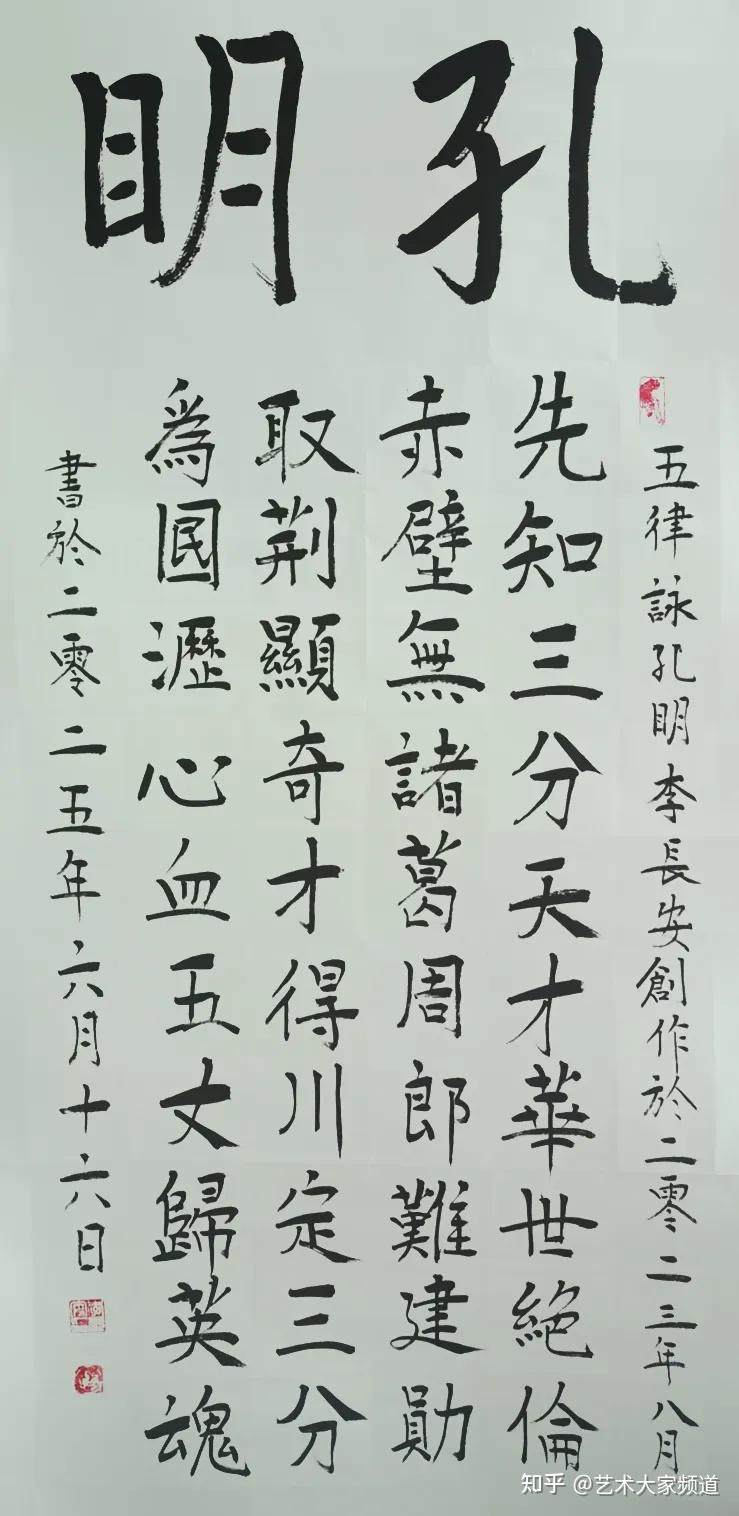 孔明
五律詠孔明李長安創作於二零二三年八月
先知三分天才華世絕倫
赤壁無諸葛周郎難建勛
取荆顯奇才得川定三分
為國瀝心血五丈歸英魂
書於二零二五年六月十六日
知乎 @艺术大家频道